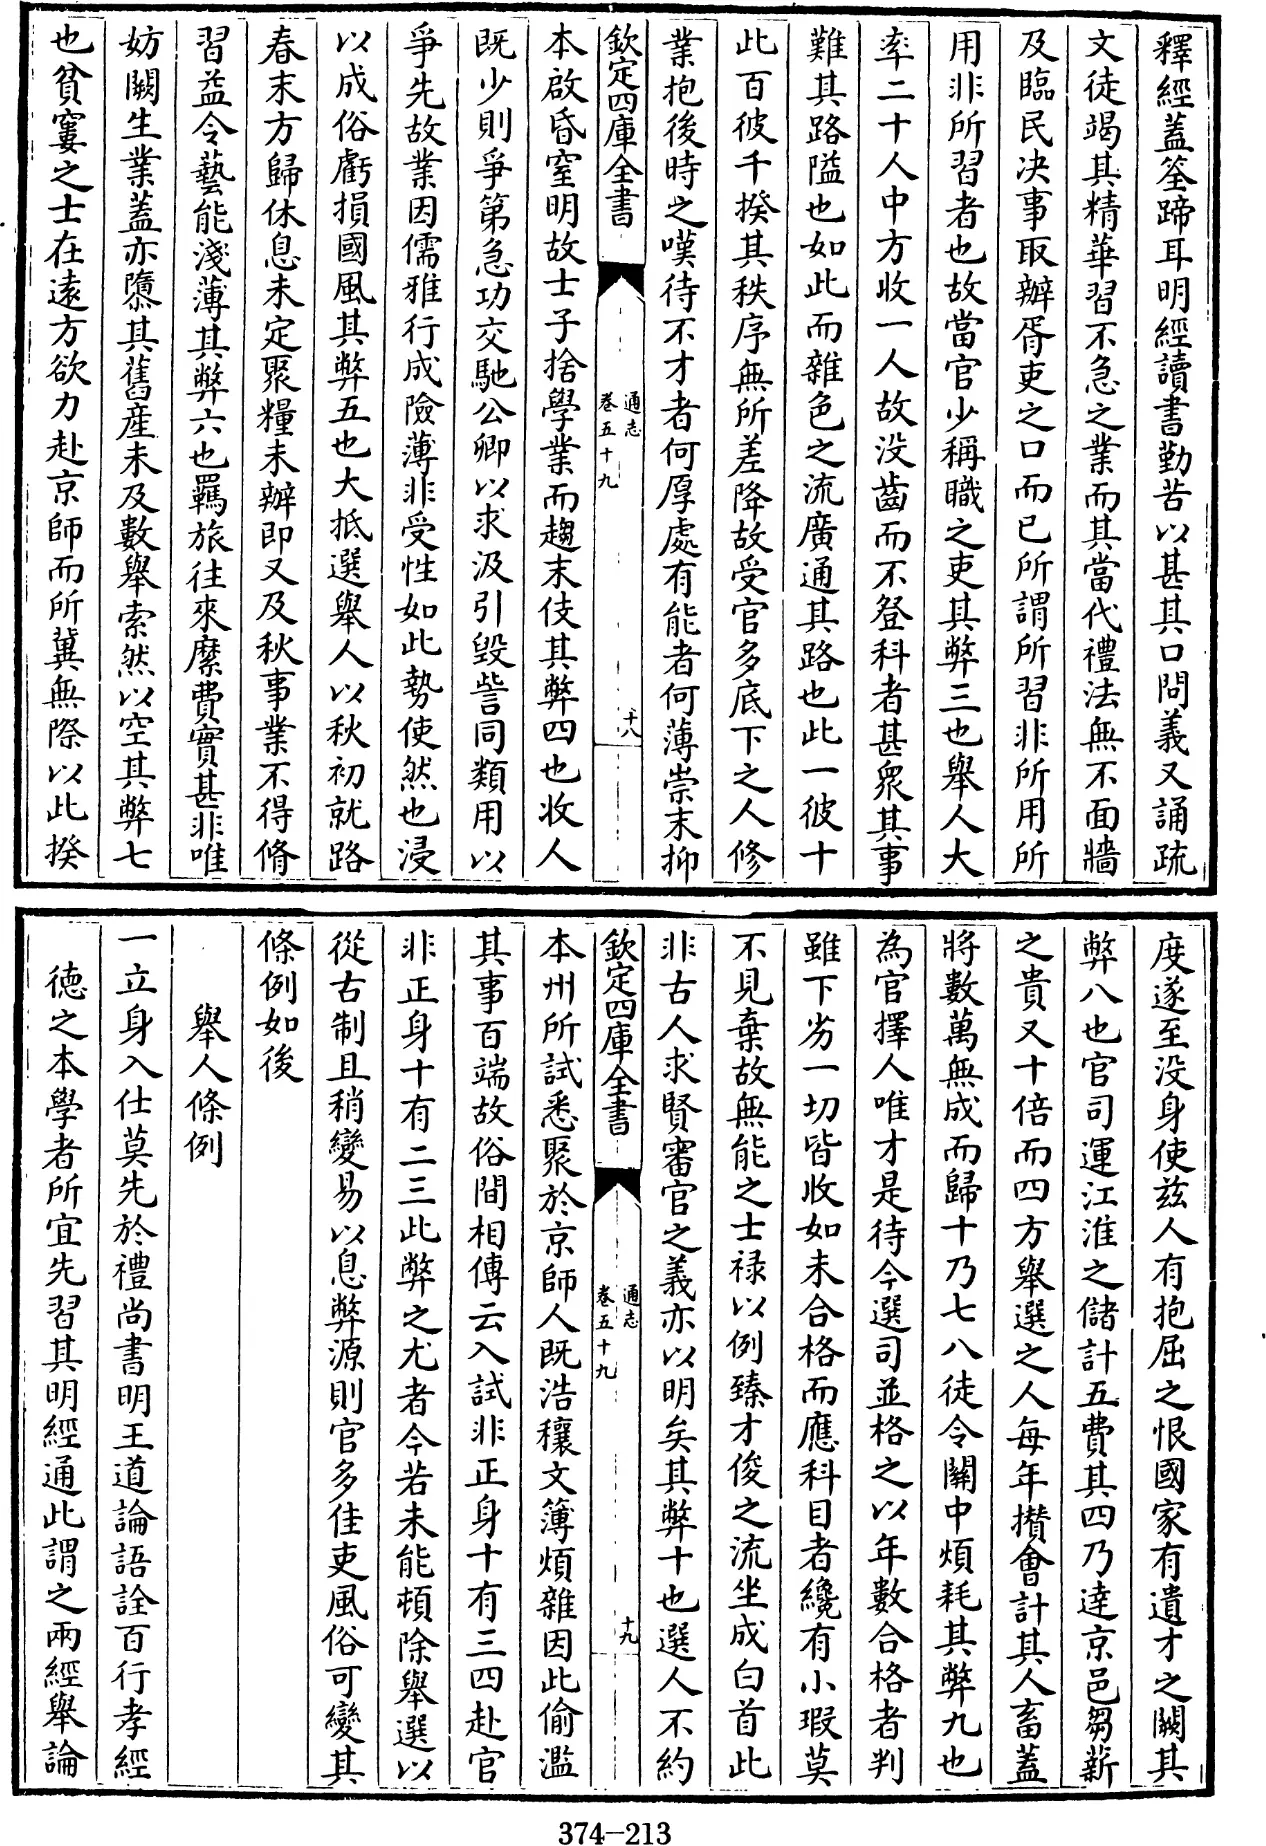 釋經蓋筌蹄耳明經讀書勤苦以甚其口問義又誦疏
文徒竭其精華習不急之業而其當代禮法無不面牆
及臨民决事取辦胥吏之口而已所謂所習非所用所
用非所習者也故當官少稱職之吏其弊三也舉人大
率二十人中方收一人故没齒而不登科者甚衆其事
難其路隘也如此而雜色之流廣通其路也此一彼十
此百彼千揆其秩序無所差降故受官多底下之人修
業抱後時之嘆待不才者何厚處有能者何薄崇末抑
欽定四庫全書
通志
卷五十九
十八
本啟昏窒明故士子捨學業而趨末伎其弊四也收人
既少則爭第急功交馳公卿以求汲引毀訾同類用以
爭先故業因儒雅行成險薄非受性如此勢使然也浸
以成俗虧損國風其弊五也大抵選舉人以秋初就路
春末方歸休息未定聚糧未辦即又及秋事業不得脩
習益令藝能淺薄其弊六也羈旅往來縻費實甚非唯
妨闕生業蓋亦隳其舊產未及數舉索然以空其弊七
也貧窶之士在逺方欲力赴京師而所冀無際以此揆
度遂至没身使兹人有抱屈之恨國家有遺才之闕其
弊八也官司運江淮之儲計五費其四乃達京邑芻薪
之貴又十倍而四方舉選之人每年攢會計其人畜蓋
將數萬無成而歸十乃七八徒令關中煩耗其弊九也
為官擇人唯才是待今選司並格之以年數合格者判
雖下劣一切皆收如未合格而應科目者纔有小瑕莫
不見棄故無能之士禄以例臻才俊之流坐成白首此
非古人求賢審官之義亦以明矣其弊十也選人不約
欽定四庫全書
通志
卷五十九
十九
本州所試悉聚於京師人既浩穰文簿煩雜因此偷濫
其事百端故俗間相傳云入試非正身十有三四赴官
非正身十有二三此弊之尤者今若未能頓除舉選以
從古制且稍變易以息弊源則官多佳吏風俗可變其
條例如後
舉人條例
一立身入仕莫先於禮尚書明王道論語詮百行孝經
德之本學者所宜先習其明經通此謂之兩經舉論
374-213